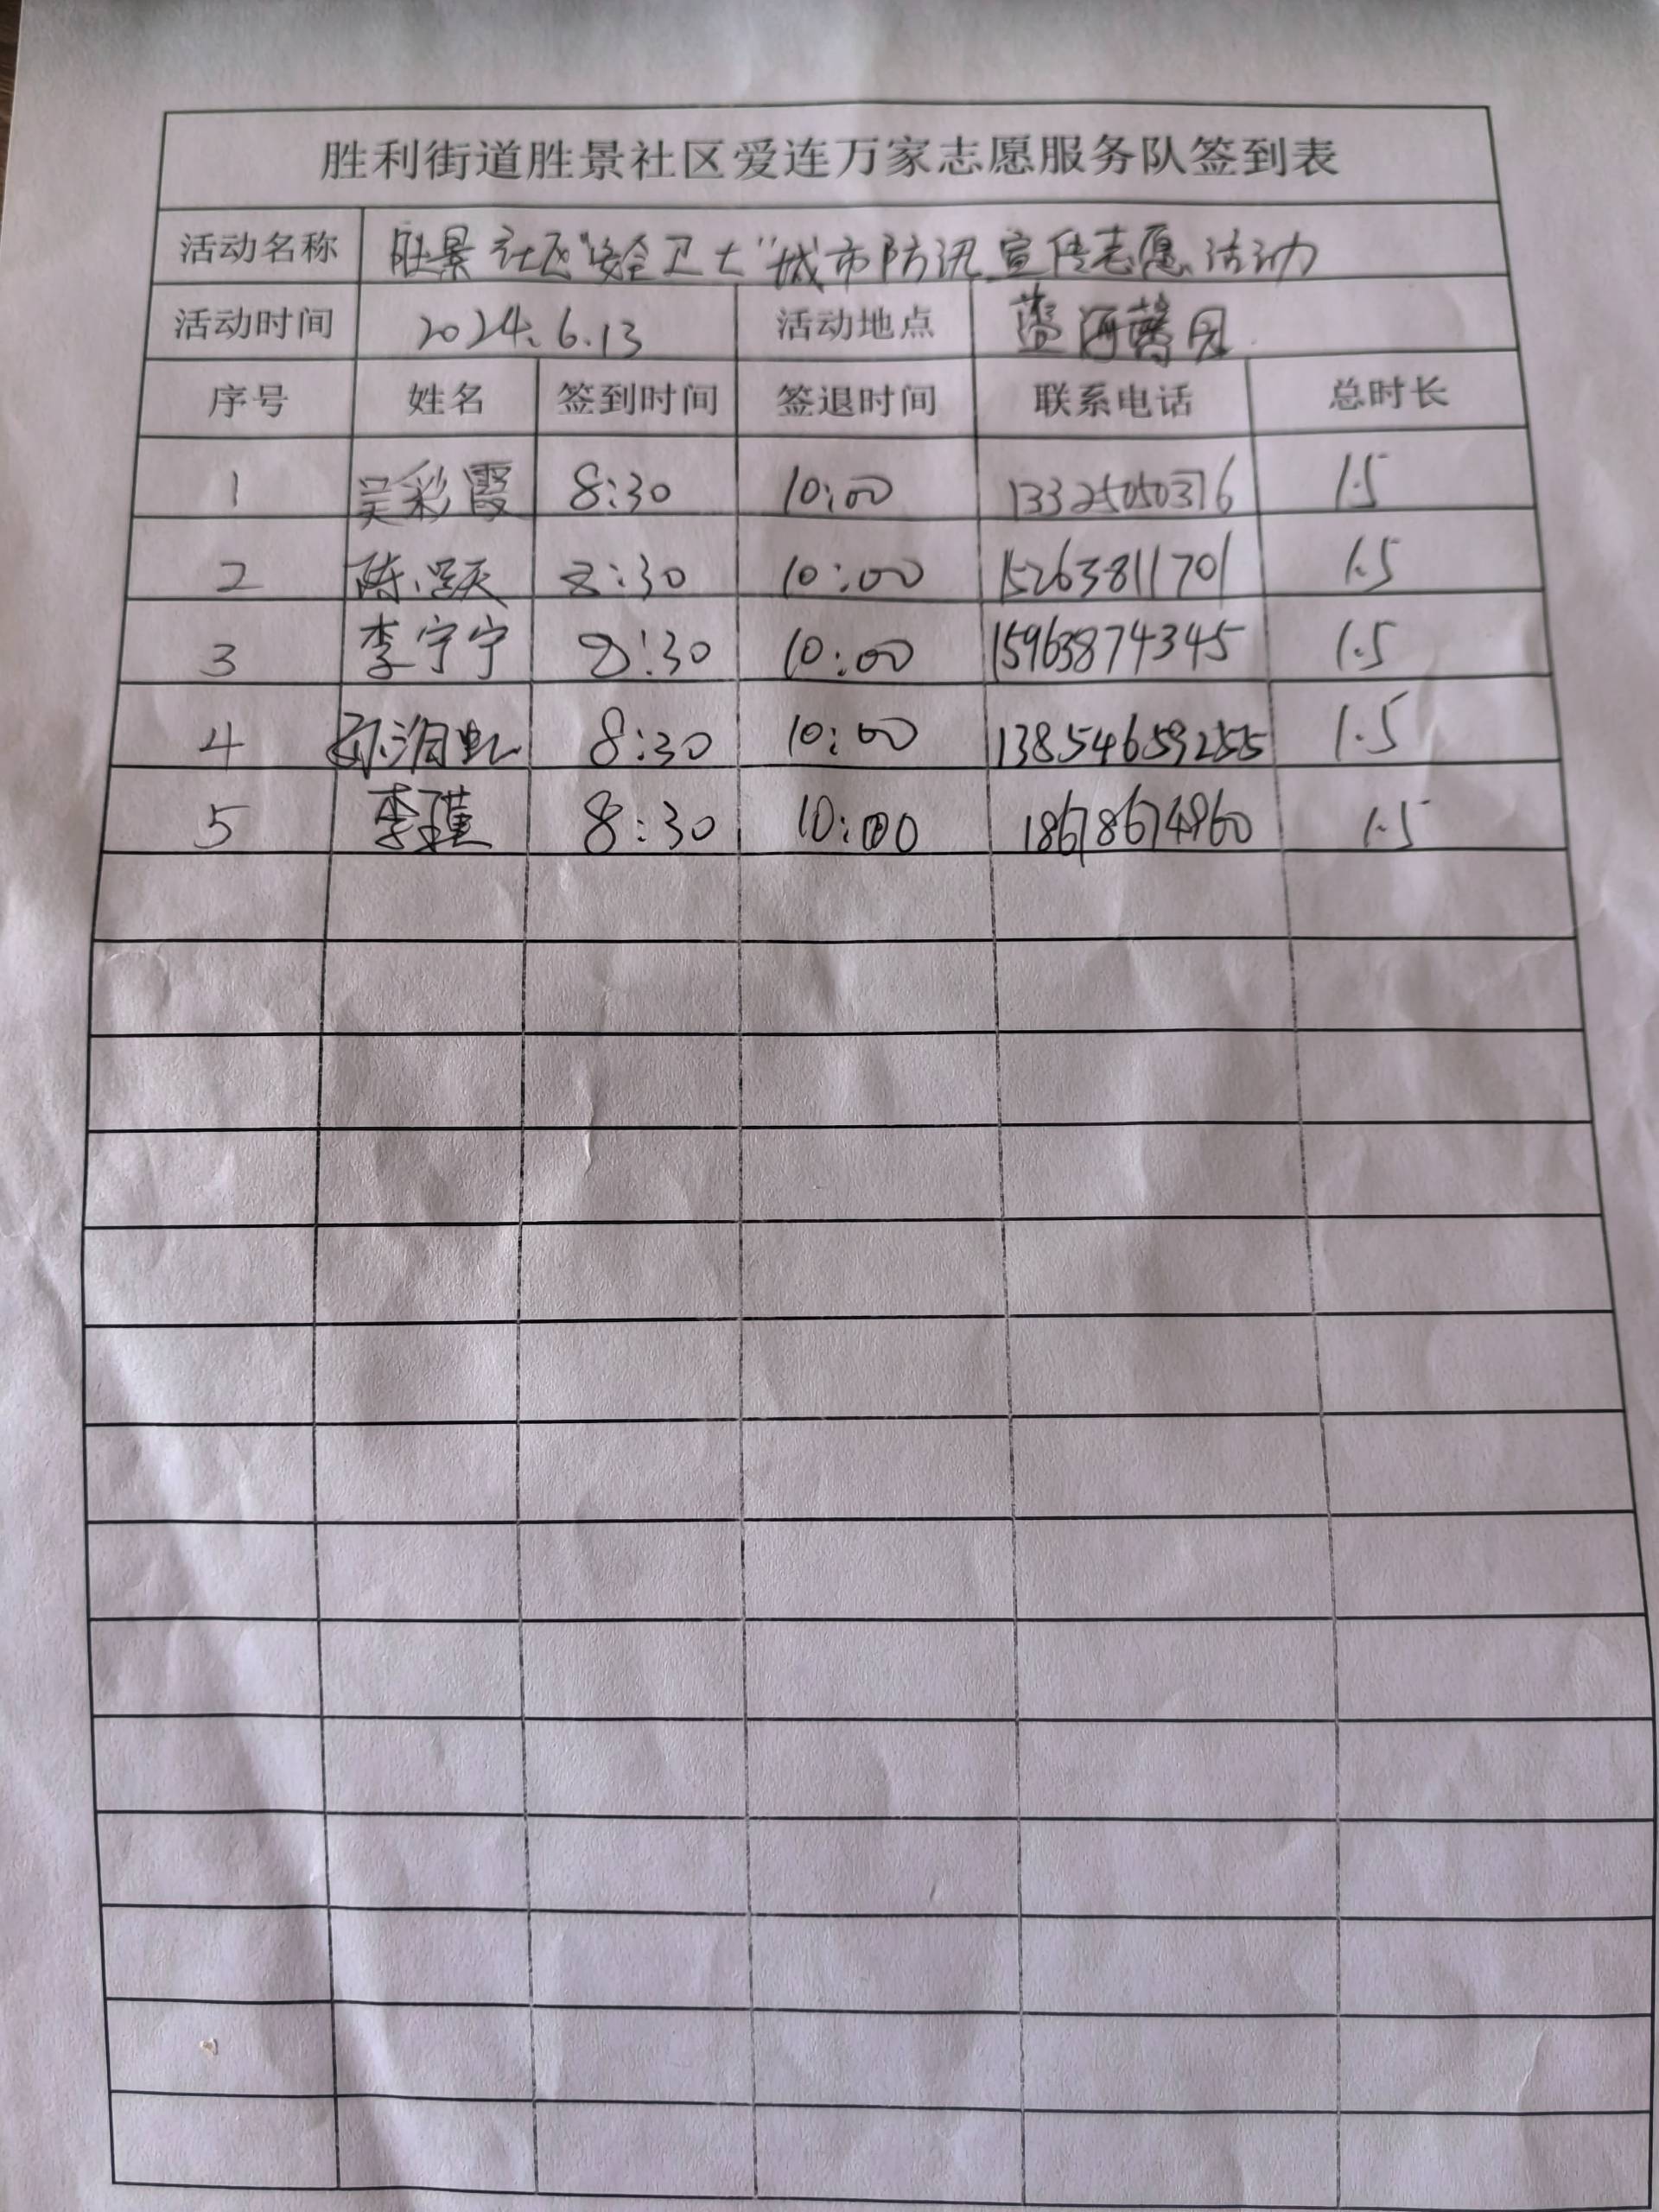 胜利街道胜景社区爱连万家志愿服务队签到表
活动名称 胜景社区"安全卫士"城市防汛宣传志愿活动
活动时间 2024.6.13 活动地点
序号 姓名 签到时间 签退时间 联系电话 总时长
1 吴彩霞 8:30 10:00 13325050376 1.5
2 陈 8:30 10:00 15263811701 1.5
3 李宁宁 8:30 10:00 15963874345 1.5
4 8:30 10:00 13854659255 1.5
5 李瑾 8:30 10:00 18678674960 1.5